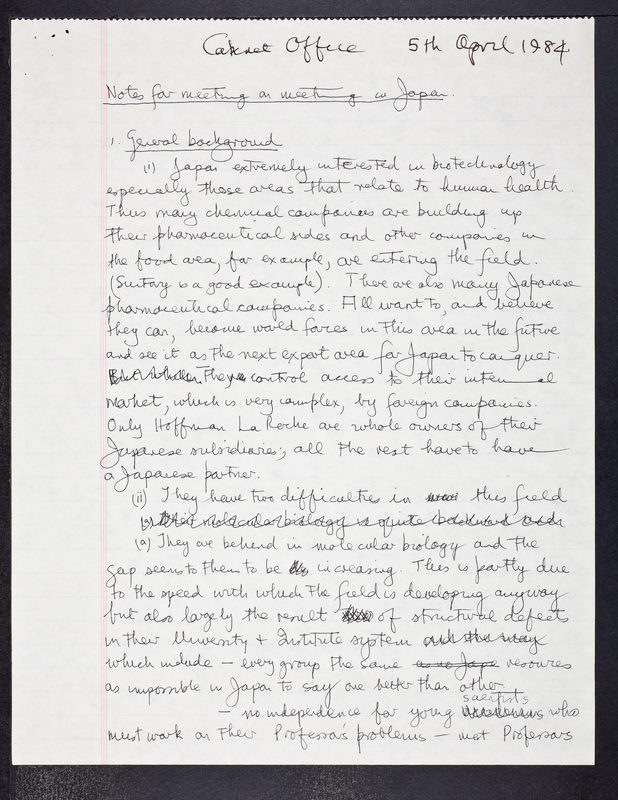 Cabinet Office 5th April 1984
Notes for meeting on meeting in Japan.
1. General background
(i) Japan extremely interested in biotechnology
especially those areas that relate to human health.
Thus many chemical companies are building up
their pharmaceutical sides and other companies in
the food area, for example, are entering the field.
(Suntory is a good example). There are also many Japanese
pharmaceutical companies. All want to, and believe
they can, become world forces in this area in the future
and see it as the next export area for Japan to conquer.
They control access to their internal
market, which is very complex, by foreign companies.
Only Hoffman La Roche are whole owners of their
Japanese subsidiaries; all the rest have to have
a Japanese partner.
(ii) They have two difficulties in this field
(a) Their molecular biology is quite backward and
(a) They are behind in molecular biology and the
gap seems to them to be increasing. This is partly due
to the speed with which the field is developing anyway
but also largely the result of structural defects
in their University + Institute system and the way
which include – every group the same as no Jap resources
as impossible in Japan to say one better than other
– no independence for young scientists who
must work on their Professors problems – most Professors